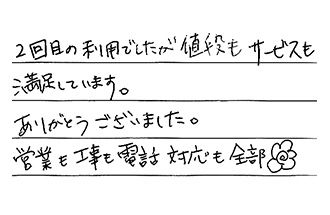 2回目の利用でしたが値段もサービスも
満足しています。
ありがとうございました。
営業も工事も電話対応も全部